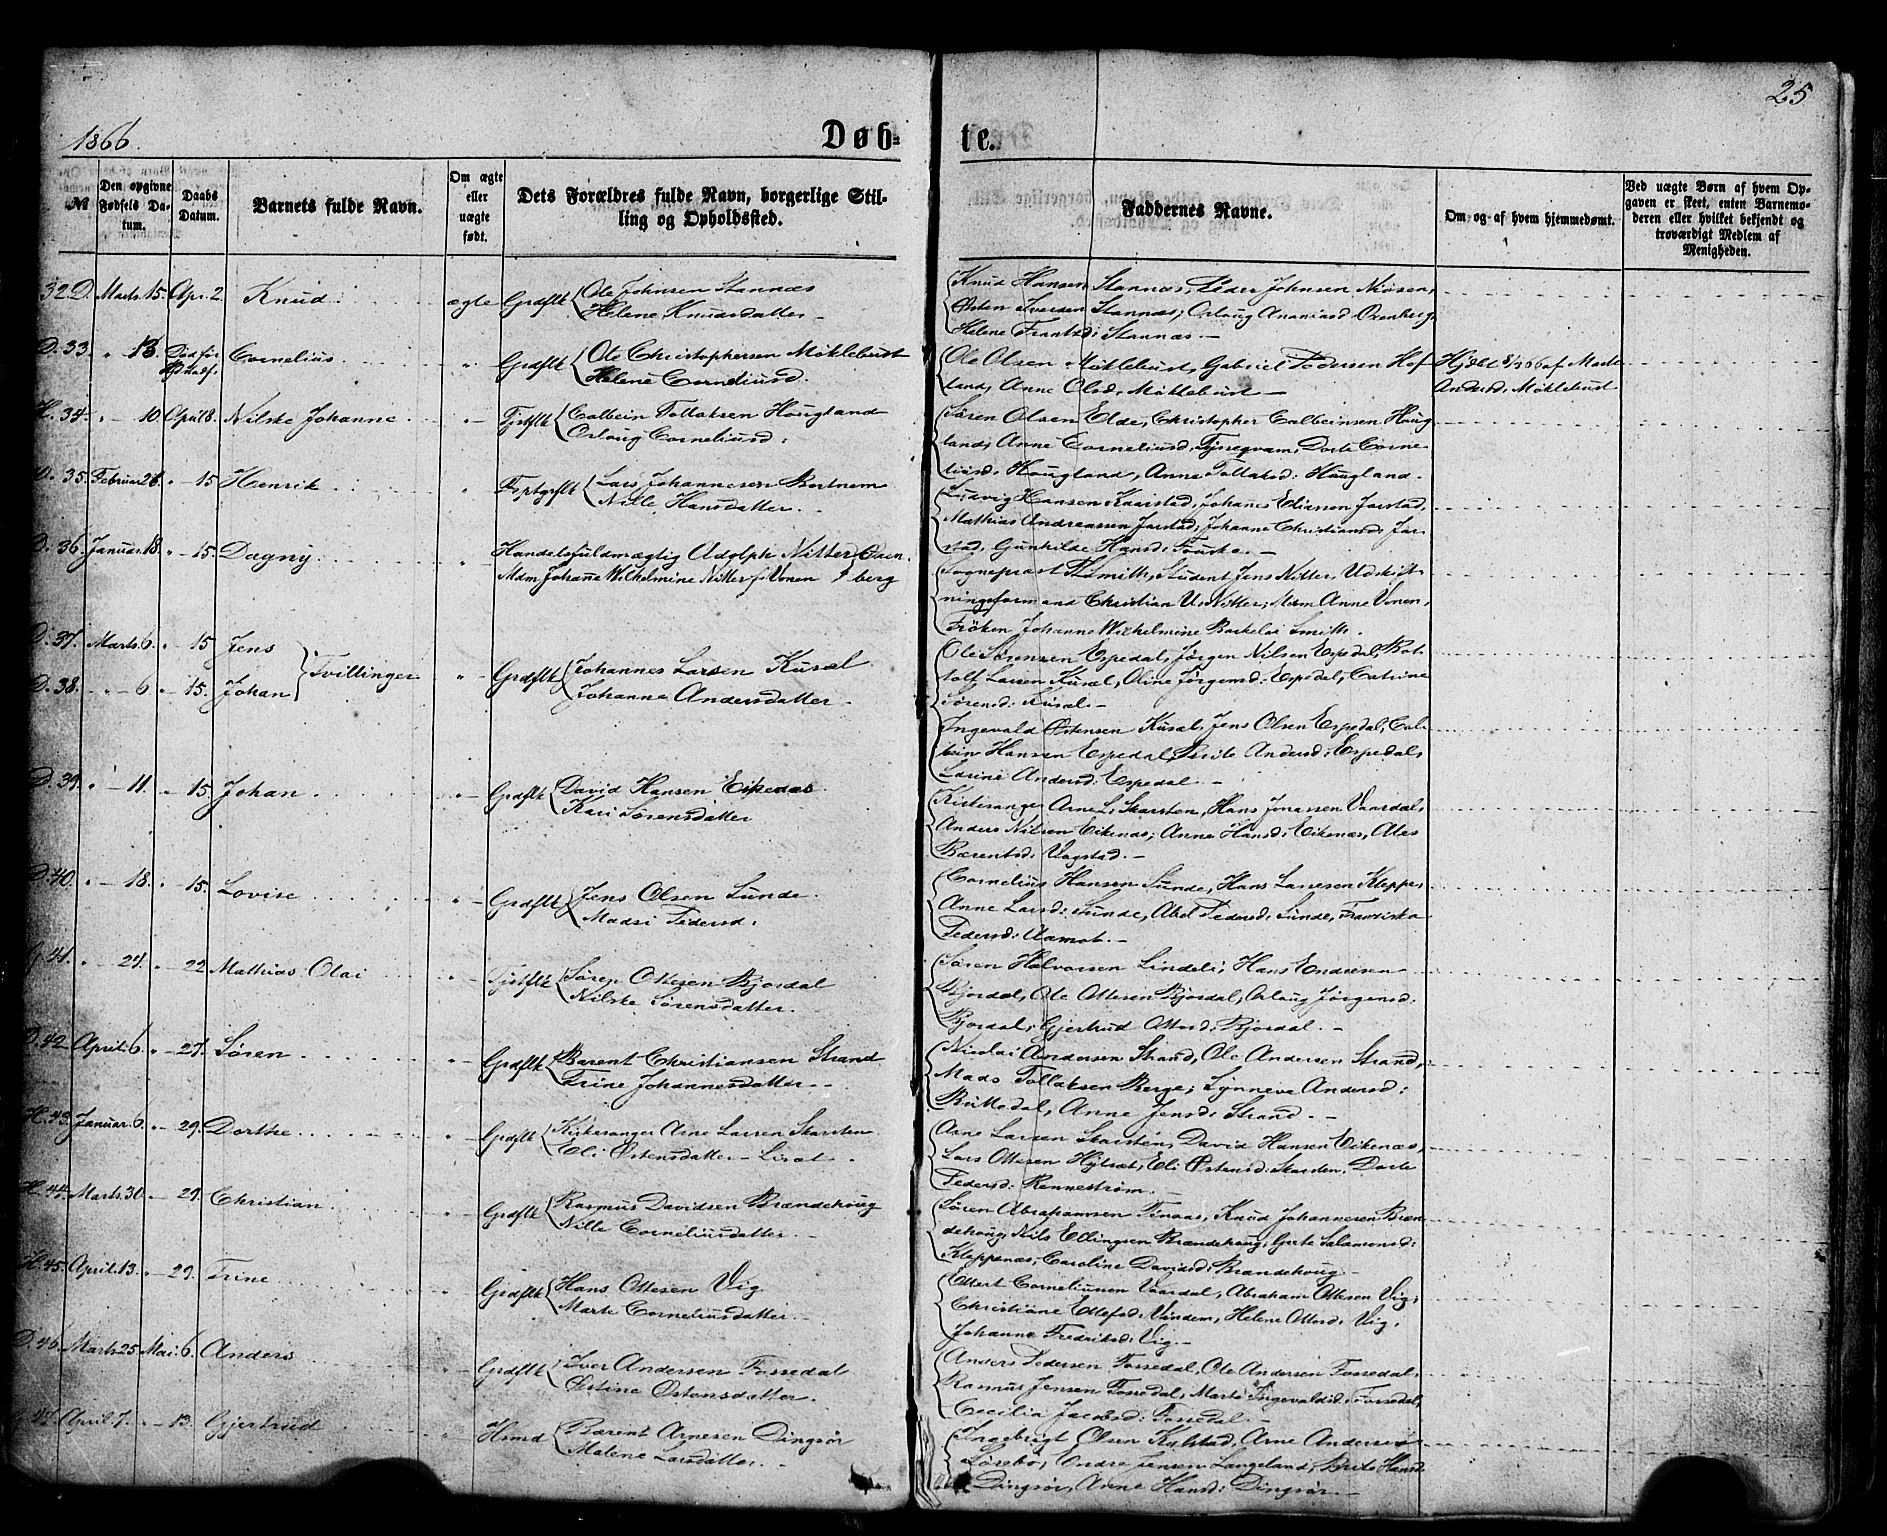 1866.
Døb=
te.
25
№
Den opgivne Fødsels Datum.
Daabs Datum.
Barnets fulde Navn.
Om ægte eller uægte født.
Dets Forældres fulde Navn, borgerlige Stilling og Opholdssted.
Faddernes Navne.
Om og af hvem hjemmedøbt.
Ved uægte Børn af hvem Opgaven er skeet, enten Barnemoderen eller hvilket bekjendt og troværdigt Medlem af Menigheden.
32 D. Marts 15. Apr. 2. Knud. ægte Grdflk Ole Johnsen Stannæs
Helene Knudsdatter.
Knud Hansen Stannæs, Peder Johnsen Niøsen,
Østen Iversen Stannæs; Orloug Ananiasd Oxenberg,
Helene Frantzd: Stannæs.
D. 33. " 13. Død før Cornelius. " Grdflk Ole Christophersen Möklebust
Helene Corneliusd.
Ole Olsen Möklebust, Gabriel Pedersen Hof
land, Anne Olsd. Möklebust
Hjdbt af Marte
Andersd. Möklebust
H. 34. " 10. April 8. Nilske Johanne " Tjstflk Colbein Tollaksen Hougland
Orloug Corneliusd:
Søren Olsen Elde, Christopher Colbeinsen Houg
land, Anne Corneliusd. Dorte Corne
liusd. Hougland, Anne Tollaksd: Hougland.
D. 35. Februar 26. " 15 Henrik " Lars Johannesen Bortnem
Nille Hansdatter.
Ludvig Hansen Kaarstad, Johanes Eliassen Jarstad,
Mathias Andreassen Jarstad, Johanne Christiansd. Jar
stad, Gunhilde Hansd: Fouske.
D. 36. Januar 18. " 15. Dagny " Handelsfuldmægtig Adolph Nitter Oxen
Mdm Johanne Wilhelmine Nitter f. Vonen berg
Sogneprast Smith, Student Jens Nitter, Udskift
ningsformand Christian U. Nitter; Mdm Anne Vonen,
Frøken Johanne Wilhelmine Smith.
D. 37. Marts 6. " 15 Jens
D. 38. " 6 " 15. Johan
Tvillinger " Grdflk Johannes Larsen Kusæl
Johanne Andersdatter.
Ole Sørensen Espedal, Jørgen Nilsen Espedal, Bot
tolf Larsen Kusæl, Oline Jørgensd: Espedal, Catrine
Sørensd: Kusæl.
Ingevald Østensen Kusæl, Jens Olsen Espedal, Col
bein Hansen Espedal, Brite Andersd: Espedal,
Larine Andersd: Espedal.
D. 39. " 11. " 15. Johan " Grdflk David Hansen Eikenæs
Kari Sørensdatter
Kirkesanger Arne L. Skarsten, Hans Jonassen Vaardal,
Anders Nilsen Eikenæs; Anne Hansd: Eikenæs, Ales
Bærentsd: Vagstad.
D. 40. " 18. " 15. Lovise " Grdflk Jens Olsen Sunde
Madsi Pedersd:
Cornelius Hansen Sunde, Hans Larsen Kleppe,
Anne Larsd: Sunde, Abel Pedersd: Sunde, Franziska
Pedersd: Aamot.
G. 41. " 24. " 22 Mathias Olai " Tjstflk Søren Ottesen Bjordal
Nilske Sørensdatter.
Søren Halvorsen Lindeli, Hans Endresen
Bjordal, Ole Ottesen Bjordal, Orloug Jørgensd:
Bjordal, Gjertrud Ottesd: Bjordal.
D. 42 April. 6. " 27. Søren " Grdflk Barent Christiansen Strand
Trine Johannesdatter.
Nicolai Andersen Strand, Ole Andersen Strand,
Mads Tollaksen Berge; Synneve Andersd:
Anne Jensd: Strand.
H. 43. Januar. 6. " 29. Dorthe " Grdflk Kirkesanger Arne Larsen Skarsten
Eli Østensdatter
Arne Larsen Skarsten, David Hansen Eikenæs,
Lars Ottesen Eli Østensd: Skarsten, Dorte
Pedersd: Rennestrøm.
H. 44. Marts. 30. " 29. Christian " Grdflk Rasmus Davidsen Brændehoug
Nille Corneliusdatter.
Søren Abrahamsen Knud Johannesen Bræn
dehoug, Nils Ellingsen Brændehoug, Gurte Salamonsd:
Kleppenæs, Caroline Davidsd: Brændehoug
H. 45. April. 13. " 29. Trine " Grdflk Hans Ottesen Vig
Marte Corneliusdatter.
Ottert Corneliusen Vaardal, Abraham Ottesen Vig,
Christiane Helene Ottesd: Vig,
Johanne Fredriksd: Vig.
D. 46. Marts 25 Mai. 6. Anders " Grdflk Iver Andersen Fossedal
Østine Østensdatter.
Anders Pedersen Fossedal, Ole Andersen Fossedal,
Rasmus Jensen Fossedal, Marte Ingevaldsd: Fossedal,
Cecilia Jacobsd: Fossedal.
47. April. 7. " 13. Gjertrud " Hsmd Bærent Arnesen Dingsør
Malene Larsdatter.
Ingebrigt Olsen Kylstad, Arne Andersen
Endre Jensen Langeland, Brite Hansd
Dingsør, Anne Hansd: Dingsør.